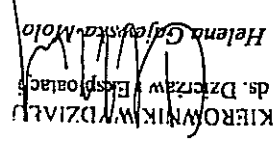 KIEROWNIK WYDZIAŁU
ds. Dzierżaw i Eksploatacji
Helena Gajewska-Molo